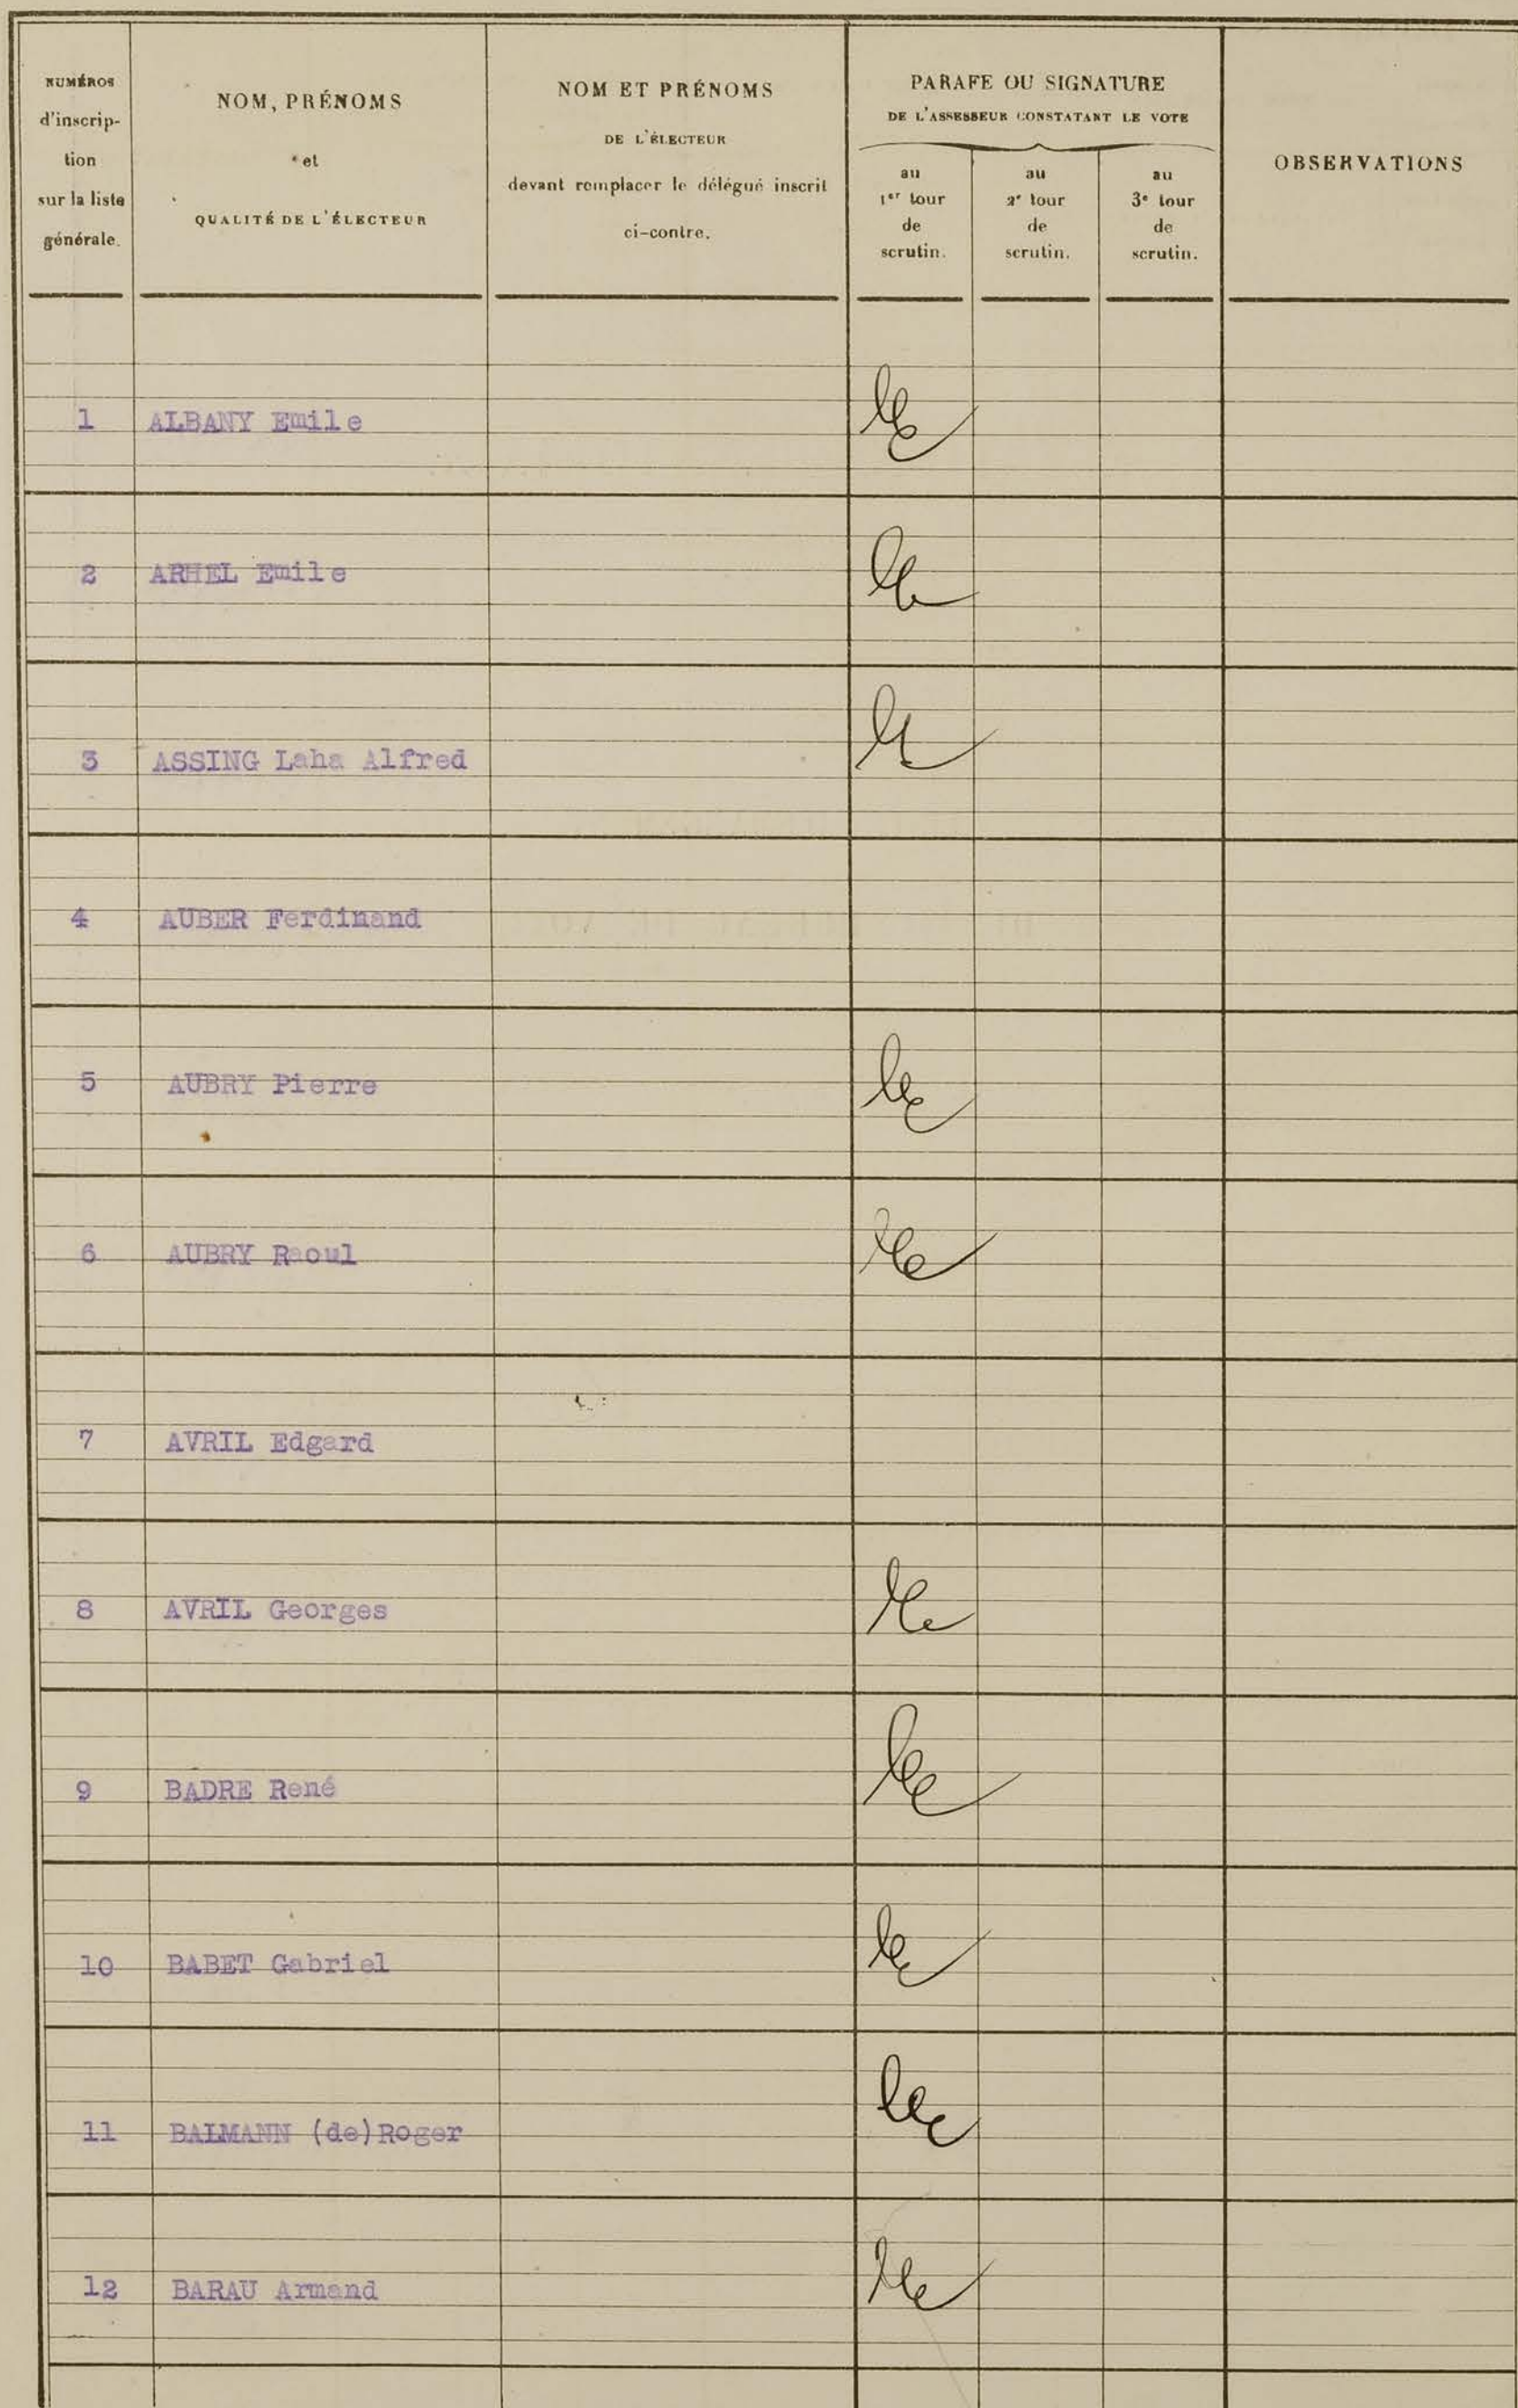 NUMÉROS
d'inscrip-
tion
sur la liste
générale.
NOM, PRÉNOMS
et
QUALITÉ DE L'ÉLECTEUR
NOM ET PRÉNOMS
DE L'ÉLECTEUR
devant remplacer le délégué inscrit
ci-contre.
PARAFE OU SIGNATURE
DE L'ASSESSEUR CONSTATANT LE VOTE
au
1er tour
de
scrutin.
au
2e tour
de
scrutin.
au
3e tour
de
scrutin.
OBSERVATIONS
1 ALBANY Emile
2 ARHEL Emile
3 ASSING Laha Alfred
4 AUBER Ferdinand
5 AUBRY Pierre
6 AUBRY Raoul
7 AVRIL Edgard
8 AVRIL Georges
9 BADRE René
10 BABET Gabriel
11 BALMANN (de)Roger
12 BARAU Armand